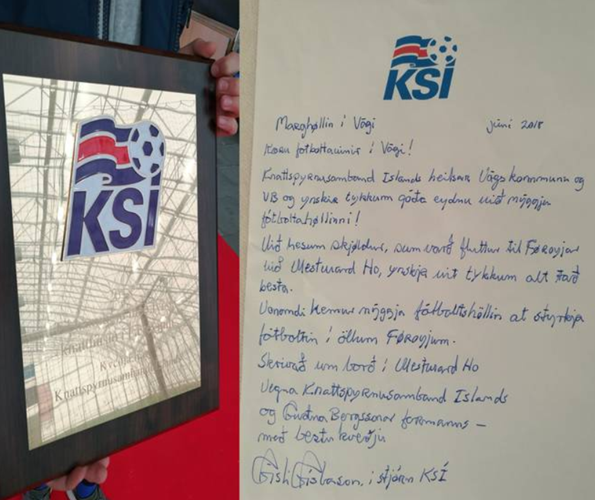 KSÍ
Knattspyrnusamband
KSÍ
Marghøllin í Vági juni 2018
Kæru fótbóltsvinir í Vági!
Knattspyrnusamband Islands heilsar Vágs kommunu og
VB og ynskir tykkum góða eydnu við nýggju
fótbóltshøllini!
Við hesum skjøldur, sum varð fluttur til Føroyjar
við Westward Ho, ynskja vit tykkum alt tað
besta.
Vanandi kemur nýggja fótbóltshøllin at styrkja
fótbóltin í øllum Føroyjum.
Skrivað um borð í Westward Ho
Vegna Knattspyrnusamband Islands
og Guðna Bergssonar formanns –
með bestu kveðju
Gísli Gíslason, í stjórn KSÍ